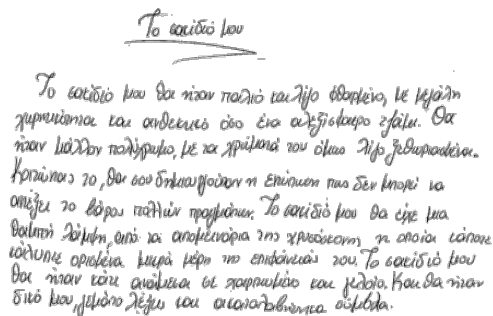 Το σακίδιό μου
Το σακίδιό μου θα ήταν παλιό και λίγο φθαρμένο, με μεγάλη
χωρητικότητα και ανθεκτικό όσο ένα αλεξίσφαιρο τζάμι. Θα
ήταν μάλλον πολύχρωμο, με τα χρώματά του όμως λίγο ξεθωριασμένα.
Κοιτώντας το, θα σου δημιουργούσαν η εντύπωση πως δεν μπορεί να
αντέξει το βάρος πολλών πραγμάτων. Το σακίδιό μου θα είχε μια
θαμπή λάμψη, από τα απομεινάρια της χρυσόσκονης η οποία κάποτε
κάλυπτε ορισμένα μικρά μέρη της επιφάνειάς του. Το σακίδιό μου
θα ήταν κάτι ανάμεσα σε χαριτωμένο και γελοίο. Και θα ήταν
δικό μου, γεμάτο λέξεις και ακαταλαβίστικα σύμβολα.